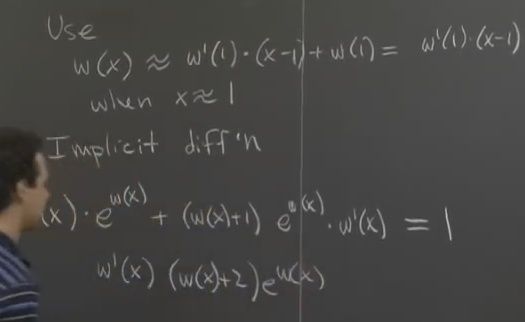 Use
w(x) ≈ w'(1)·(x-1) + w(1) = w'(1)·(x-1)
when x≈1
Implicit diff'n
(x)·e^{w(x)} + (w(x)+1) e^{w(x)}·w'(x) = 1
w'(x) (w(x)+2)e^{w(x)}